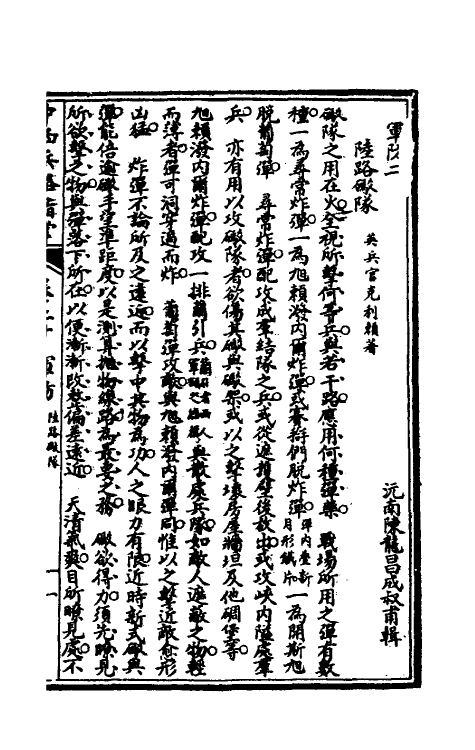 軍防二
沅南陳龍昌成叔甫輯
陸路礮隊
英兵官克利賴著
礮隊之用在火全視所擊何等兵與若干路應用何種彈藥 戰場所用之彈有數
種一為尋常炸彈一為旭賴潑內爾炸彈或賽符們脫炸彈彈內壹新月形鐵片一為開斯旭
脫葡萄彈 尋常炸彈配攻成羣結隊之兵或從遮牆壁後放出或攻峽內隘處羣
兵 亦有用以攻礮隊者欲傷其礮與礮架或以之擊壞房屋牆垣及他碉堡等
旭賴潑內爾炸彈配攻一排兵與散處兵隊如敵人遮蔽之物輕
而薄者彈可洞穿過而炸 葡萄彈攻擊與旭賴潑內爾彈同惟以之擊近敵愈形
凶猛 炸彈不論所及之遠近而以擊中其物為功人之眼力有限近時新式礮與
彈能倍過礮手望準距度以是測算拋物線路為最要之務 礮欲得力須先瞭見
所欲擊之物與彈落下所在以便漸漸改整偏差遠近 天清氣爽目所瞭見處不
中西兵略指掌
軍防
陸路礮隊
一